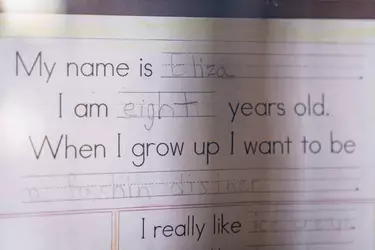 My name is Eliza.
I am eight years old.
When I grow up I want to be
a fachin disiner.
I really like